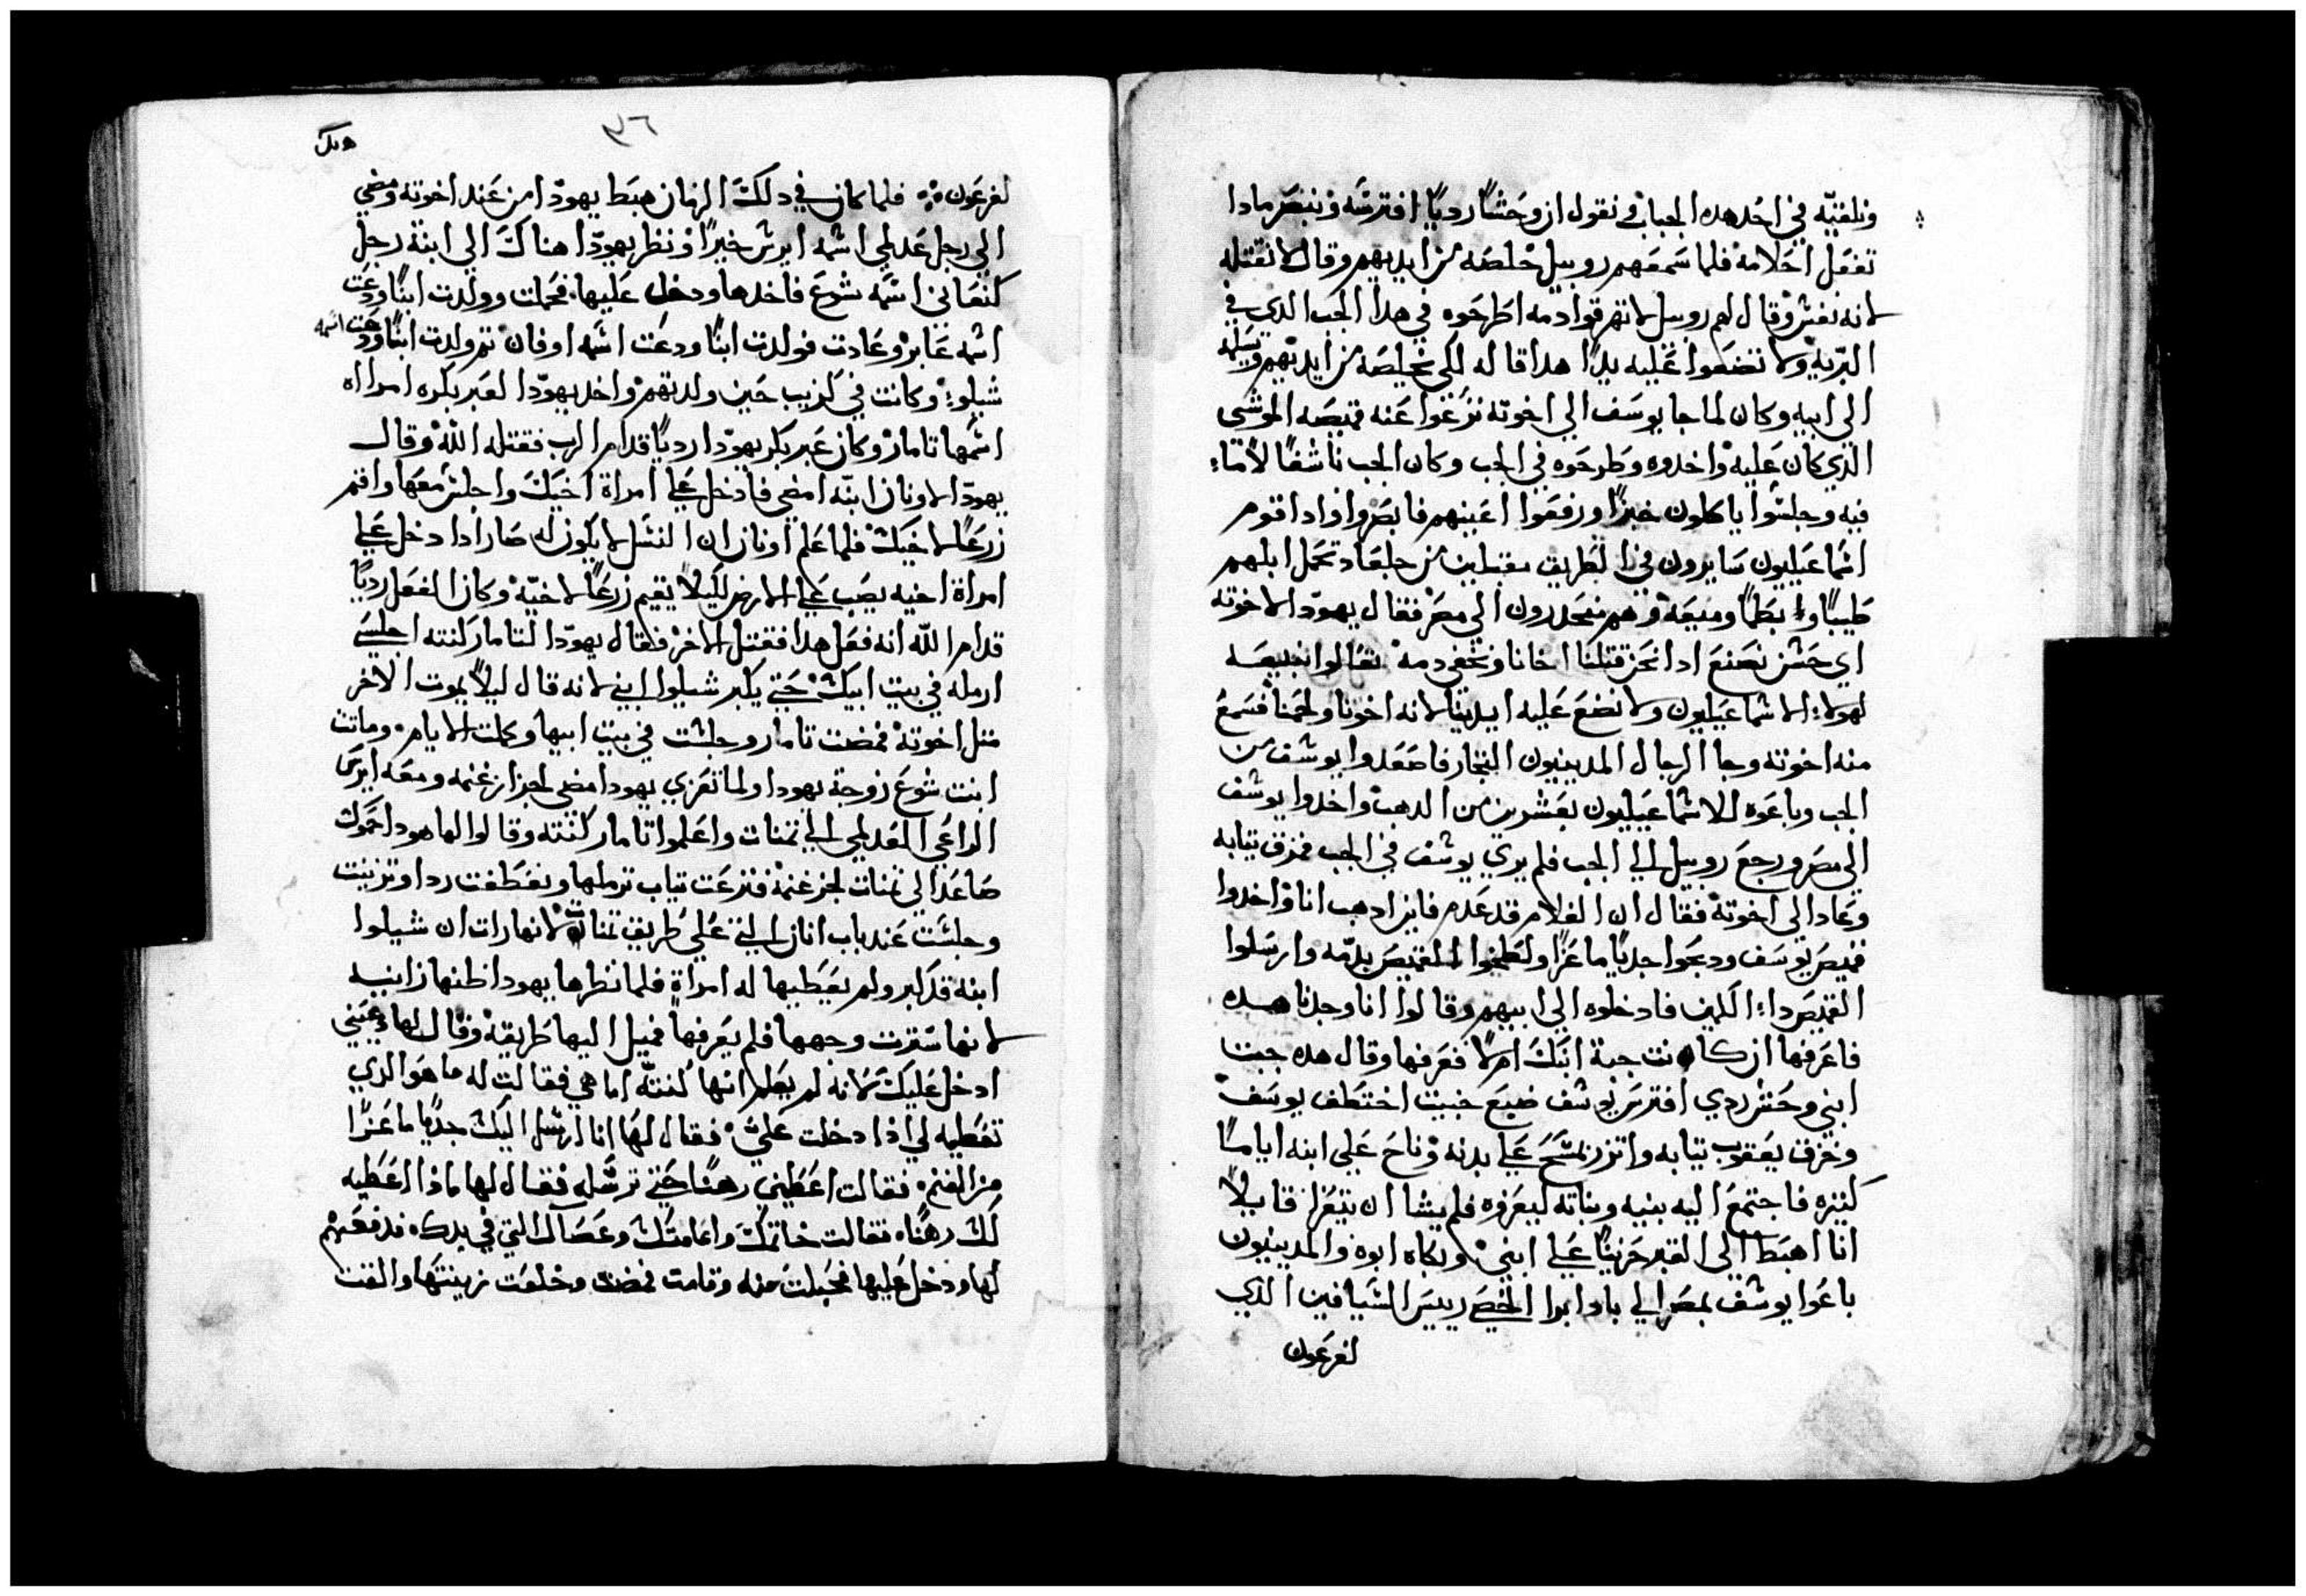 ونلقيه في احد هده الجباب و نقول ان وحشا رديا افترسه و ننبصر مادا
تفعل احلامه فلما سمعهم روبيل خلصه من ايديهم وقال لا نقتله
لانه نفس وقال لهم روبيل لا تهرقوا دمه اطرحوه في هدا الجب الدي في
البريه ولا تضعوا عليه يدا هدا قاله لكي يخلصه من ايديهم ويسلمه
الي ابيه وكان لما جا يوسف الي اخوته نزعوا عنه قميصه الموشى
الدي كان عليه واخدوه وطرحوه في الجب وكان الجب ناشفا لا ماء
فيه وجلسوا ياكلون خبزا ورفعوا اعينهم فابصروا وادا قوم
اسماعيليون سايرون في الطريق مقبلين من جلعاد تحمل ابلهم
طيبا و بطما وميعه وهم منحدرون الي مصر فقال يهودا لاخوته
اي حسن نصنع ادا نحن قتلنا اخانا ونخفي دمه تعالوا نبيعه
لهولاء الاسماعيليون ولا نضع عليه ايدينا لانه اخونا ولحمنا فسمع
منه اخوته وجا الرجال المدينيون التجار فاصعدوا يوسف من
الجب وباعوه للاسماعيليون بعشرين من الدهب واخدوا يوسف
الي مصر ورجع روبيل الي الجب فلم يري يوسف في الجب فمزق تيابه
وعاد الي اخوته فقال ان الغلام قد عدم فاين ادهب انا واخدوا
قميص يوسف ودبحوا جديا ماعزا ولطخوا القميص بدمه وارسلوا
القميص داء الكمين فادخلوه الي ابيهم وقالوا انا وجدنا هده
فاعرفها ان كانت جبة ابنك ام لا فعرفها وقال هده جبت
ابني وحش ردي افترس يوسف ضبع خبيت اختطف يوسف
وخزق يعقوب تيابه واتزر بمسح علي بدنه وناح علي ابنه اياما
كتيره فاجتمع اليه بنيه وبناته ليعزوه فلم يشا ان يتعزا قايلا
انا اهبط الي القبر حزينا علي ابني وبكاه ابوه والمدينيون
باعوا يوسف بمصر الي بادابرا الخصي رييس السيافين الدي
لفرعون
٣٦
لفرعون فلما كان في دلك الزمان هبط يهودا من عند اخوته ومضي
الي رجل عدلمي اسمه ايرس خبرا ونظر يهودا هناك الي ابنة رجل
كنعاني اسمه شوع فاخدها ودخل عليها فحملت وولدت ابنا ودعت
اسمه عابر وعادت فولدت ابنا ودعت اسمه اوفان تم ولدت ابنا ودعت اسمه
شيلو وكانت في كزيب حين ولدتهم واخد يهودا لعبر بكره امراه
اسمها تامار وكان عبر بكر يهودا رديا قدام الرب فقتله الله وقال
يهودا لاونان ابنه امضي فادخل علي امراة اخيك واجلس معها واقم
زرعا لاخيك فلما علم اونان ان النسل لا يكون له صار ادا دخل علي
امراة اخيه يصب علي الارض لكيلا يقيم زرعا لاخيه وكان الفعل رديا
قدام الله انه فعل هدا فقتل الاخر فقال يهودا لتامار كنته اجلسي
ارمله في بيت ابيك حتي يكبر شيلوا ابني لانه قال ليلا يموت الاخر
متل اخوته فمضت تامار وجلست في بيت ابيها وكملت الايام وماتت
ابنت شوع زوجة يهودا ولما تعزي يهودا مضي لجزاز غنمه ومعه ايرس
الراعي العدلمي الي تمنات واعلموا تامار كنته وقالوا لها هودا حموك
صاعدا الي تمنات لجز غنمه فنزعت تياب ترملها وتغطفت ردا وتزينت
وجلست عند باب انان التي علي طريق تمنات لانها رات ان شيلوا
ابنه قد كبر ولم يعطيها له امراة فلما نظرها يهودا ظنها زانيه
لانها سترت وجهها فلم يعرفها فميل اليها طريقه وقال لها دعيني
ادخل عليك لانه لم يعلم انها كنته اما هي فقالت له ما هو الدي
تعطيه لي اذا دخلت علي فقال لها انا ارسل اليك جديا ماعزا
من الغنم فقالت اعطيني رهنا حتي ترسله فقال لها ماذا اعطيه
لك رهناه فقالت خاتمك وعمامتك وعصاك التي في يدك فدفعهم
لها ودخل عليها فحبلت منه وقامت فمضت وخلعت زينتها والقت